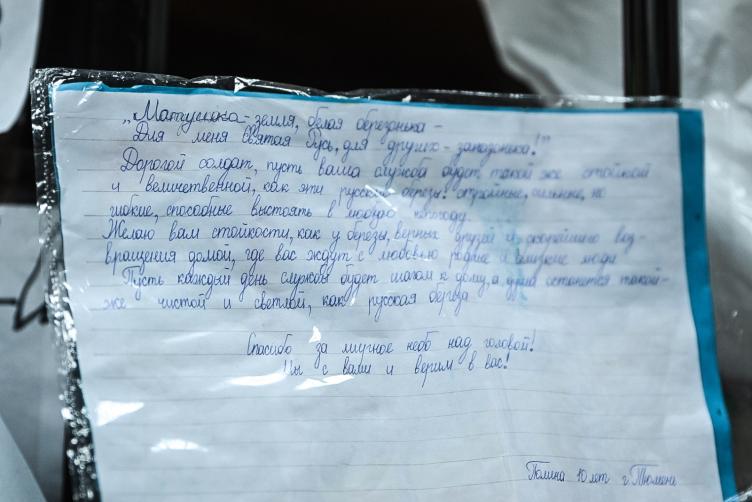 „Матушка-земля, белая березонька –
Для меня Святая Русь, для других – занозонька!"
Дорогой солдат, пусть ваша служба будет такой же стойкой
и величественной, как эти русские березы: стройные, сильные, но
гибкие, способные выстоять в любую непогоду.
Желаю вам стойкости, как у березы, верных друзей и скорейшего воз-
вращения домой, где вас ждут с любовью родные и близкие люди
Пусть каждый день службы будет шагом к дому, а душа останется такой-
же чистой и светлой, как русская береза
Спасибо за мирное небо над головой!
Мы с вами и верим в вас!
Полина 10 лет г. Тюмень